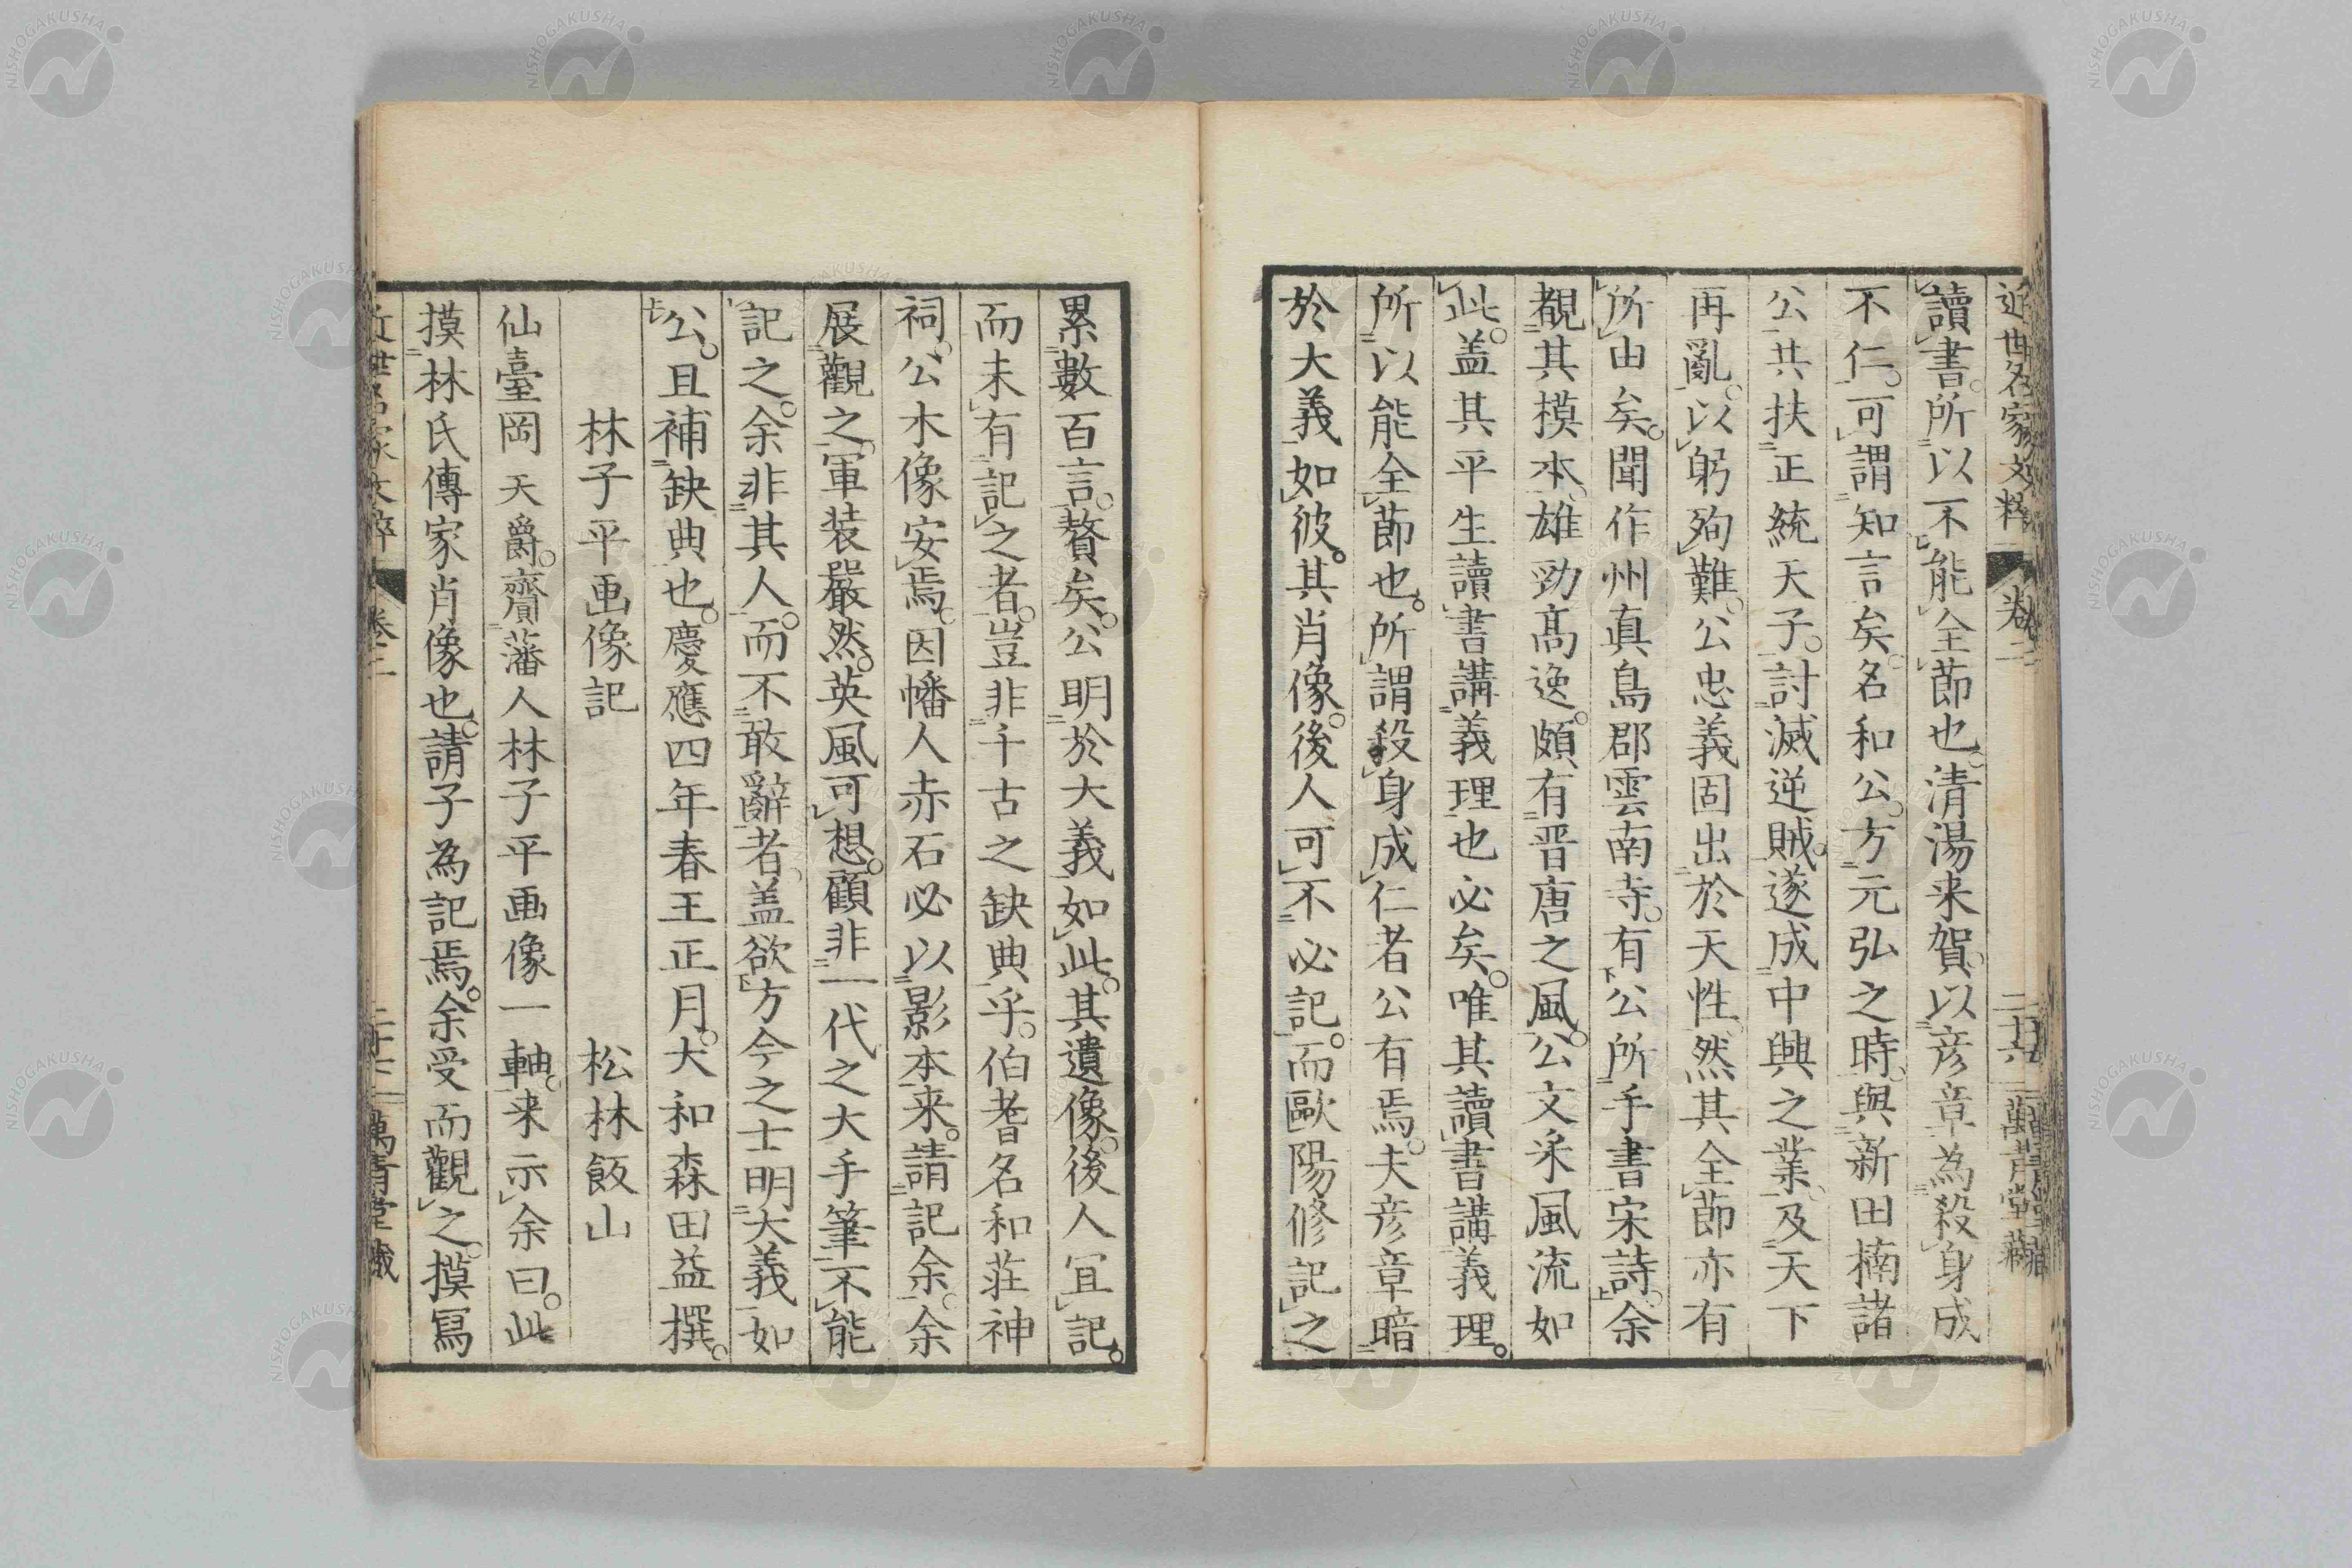 近世名家文粹 卷二 二十六 萬青堂藏
讀書。所以不能全節也。清湯来賀。以彦章為殺身成
不仁。可謂知言矣。名和公。方元弘之時。與新田楠諸
公共扶正統天子。討滅逆賊。遂成中興之業。及天下
再亂。以躬殉難。公忠義固出於天性。然其全節亦有
所由矣。聞作州真島郡雲南寺。有公所手書宋詩。余
覩其摸本。雄勁高逸。頗有晋唐之風。公文采風流如
此。盖其平生讀書講義理也必矣。唯其讀書講義理。
所以能全節也。所謂殺身成仁者公有焉。夫彦章暗
於大義如彼。其肖像。後人可不必記。而歐陽修記之
累數百言。贅矣。公明於大義如此。其遺像。後人冝記。
而未有記之者。豈非千古之缺典乎。伯耆名和莊神
祠。公木像安焉。因幡人赤石必以影本来。請記余。余
展觀之。軍装嚴然。英風可想。顧非一代之大手筆不能
記之。余非其人。而不敢辭者。盖欲方今之士明大義如
公。且補缺典也。慶應四年春王正月。大和森田益撰。
林子平画像記 松林飯山
仙臺岡天爵。齎藩人林子平画像一軸。来示余曰。此
摸林氏傳家肖像也。請子為記焉。余受而觀之。摸寫
近世名家文粹 卷二 萬青堂藏